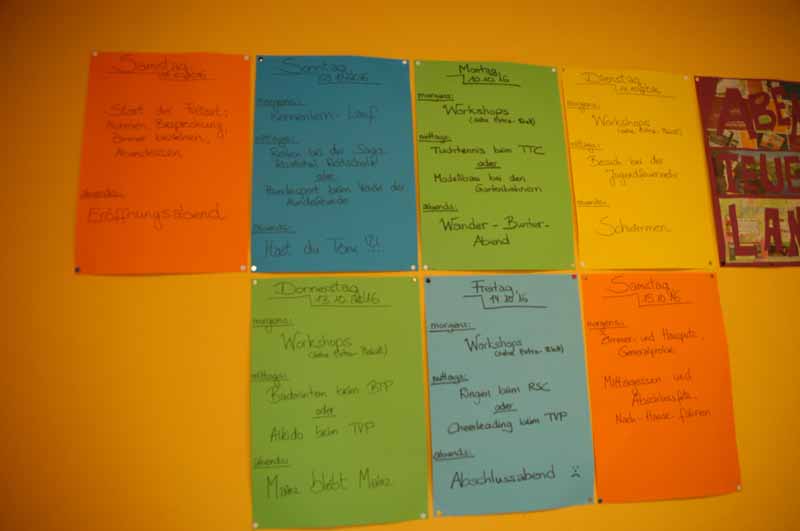 Samstag
Start der Freizeit,
Zimmer beziehen,
Abendessen
abends:
Eröffnungsabend
Sonntag
09.10.2016
morgens:
Kennenlern-Lauf
mittags:
Reiten bei der
oder
Hundesport beim Verein der
Hundefreunde
abends:
Hast du Töne !?!...
Montag
10.10.'16
morgens:
Workshops
(siehe Extra-Blatt)
mittags:
Tischtennis beim TTC
oder
Modellbau bei den
Gartenbahnern
abends:
Wander-Bunter-
Abend
Dienstag
morgens:
Workshops
(siehe Extra-Blatt)
mittags:
Besuch bei der
Jugendfeuerwehr
abends:
Schwimmen
ABEN
TEUE
LAN
Donnerstag
13.10.2016
morgens:
Workshops
(siehe Extra-Blatt)
mittags:
Badminton beim BTP
oder
Aikido beim TVP
abends:
Mainz bleibt Mainz
Freitag
14.10.'16
morgens:
Workshops
(siehe Extra-Blatt)
mittags:
Ringen beim RSC
oder
Cheerleading beim TVP
abends:
Abschlussabend
Samstag
15.10.'16
morgens:
Zimmer- und Hausputz,
Generalprobe
Mittagessen und
Nach-Hause-fahren